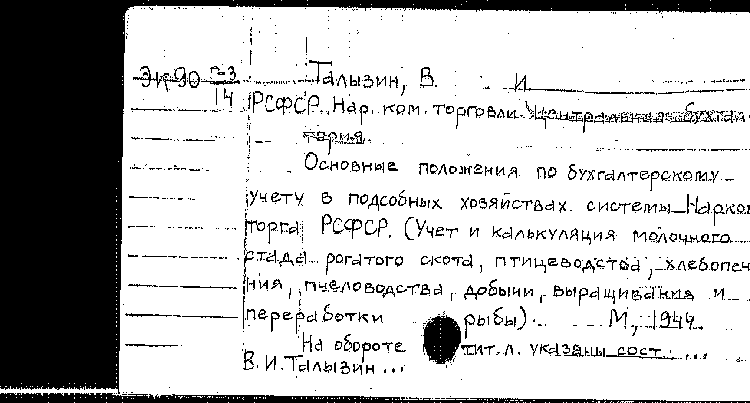 Эк90 п-3/14 Талызин, В. И.
РСФСР. Нар. ком. торговли. Центральная бухгал
терия.
Основные положения по бухгалтерскому
учету в подсобных хозяйствах системы Нарком
торга РСФСР. (Учет и калькуляция молочного
стада рогатого скота, птицеводства, хлебопече
ния, пчеловодства, добычи, выращивания и
переработки рыбы). М., 1944.
На обороте тит. л. указаны сост.: ...
В. И. Талызин ...